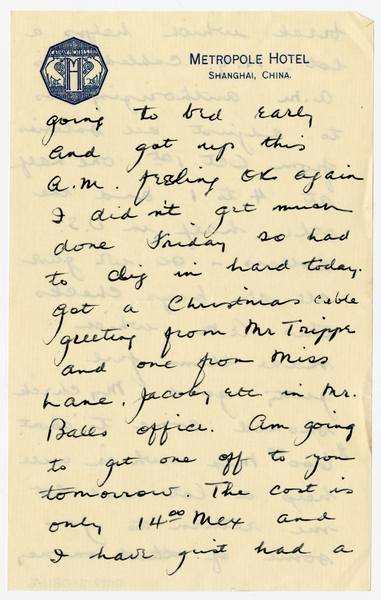 CATHAY HOTELS LTD
M
METROPOLE HOTEL
SHANGHAI, CHINA.
going to bed early
and got up this
a.m. feeling OK again
I didn't get much
done Friday so had
to dig in hard today.
Got a Christmas cable
greeting from Mr Trippe
and one from Miss
Lane, Jacoby etc in Mr.
Balls office. Am going
to get one off to you
tomorrow. The cost is
only 14.00 Mex and
I have just had a